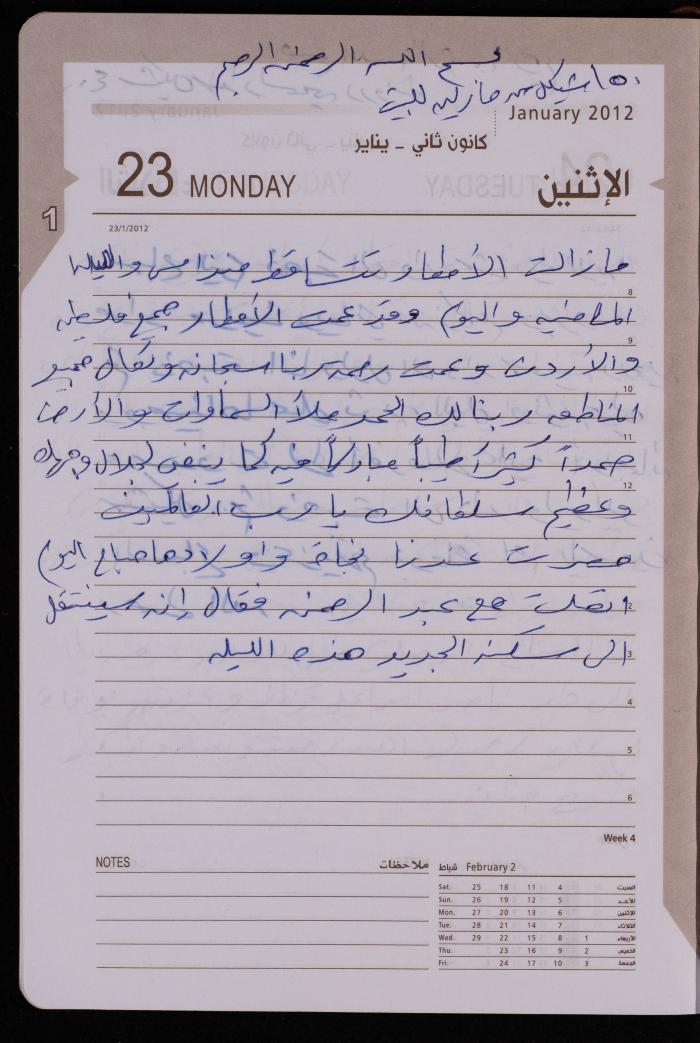 بسم الله الرحمن الرحيم
١٥٠ شيكل ثمن جاز كاز للبيت
January 2012
كانون ثاني - يناير
23 MONDAY الإثنين
1
23/1/2012
ما زالت الأمطار تتساقط منذ أمس والليلة
8
الماضية واليوم وقد عمت الأمطار جميع فلسطين
9
والأردن وعمت رحمة ربنا سبحانه وتعالى جميع
10
المناطق ربنا لك الحمد ملأ السماوات والأرض
11
حمداً كثيراً طيباً مباركاً فيه كما ينبغي لجلال وجهك
12
وعظيم سلطانك يا رب العالمين
حضرت عندنا نجاة وأولادها صباح اليوم
2
اتصلت مع عبد الرحمن فقال إنه سينتقل
3
إلى سكنه الجديد هذه الليلة
4
5
6
Week 4
NOTES ملاحظات
February 2 شباط
Sat. 25 18 11 4 السبت
Sun. 26 19 12 5 الأحد
Mon. 27 20 13 6 الإثنين
Tue. 28 21 14 7 الثلاثاء
Wed. 29 22 15 8 1 الأربعاء
Thu. 23 16 9 2 الخميس
Fri. 24 17 10 3 الجمعة